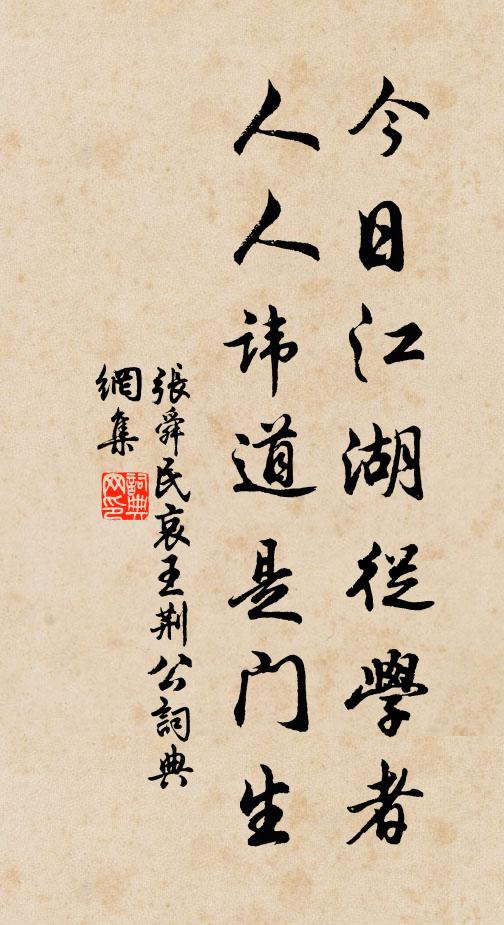 今日江湖從學者
人人諱道是門生
張舜民哀王荆公詞典
網集
詞典
网印